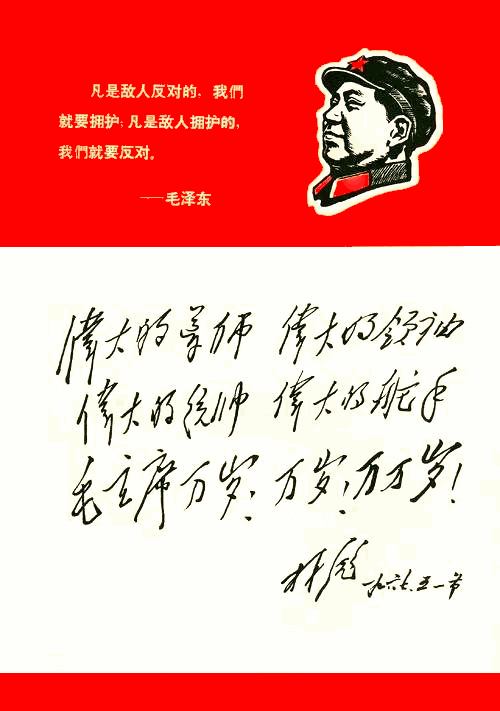 凡是敌人反对的，我們
就要拥护；凡是敌人拥护的，
我們就要反对。
——毛泽东
偉大的导师 偉大的领袖
偉大的统帅 偉大的舵手
毛主席万岁！万岁！万万岁！
林彪 一九六七.五一节